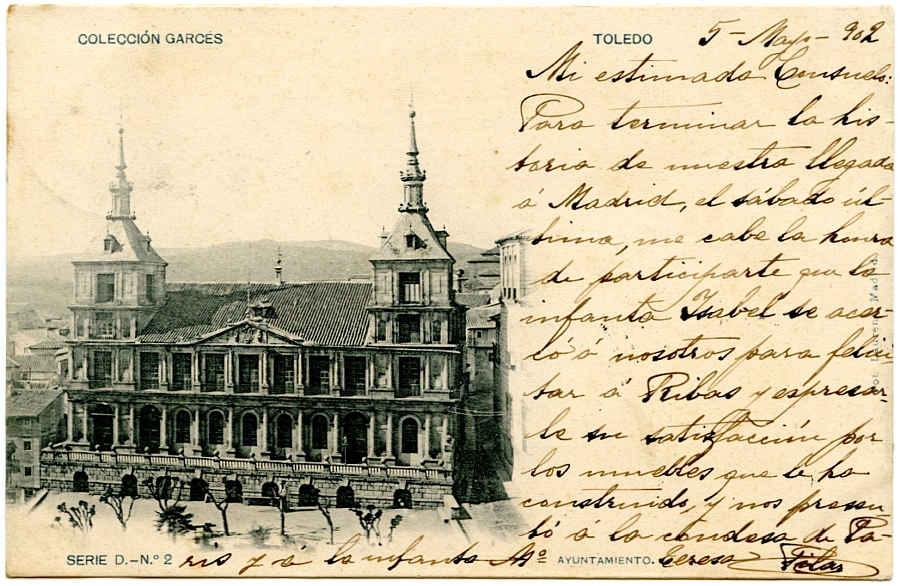 COLECCIÓN GARCÉS
TOLEDO
5 - Mayo - 902
Mi estimada Consuelo:
Para terminar la his-
toria de nuestra llegada
á Madrid, el sábado úl-
timo, me cabe la honra
de participarte que la
infanta Isabel se acer-
có á nosotros para felici
tar á Ribas y espresar-
le su satisfacción por
los muebles que le ha
construido, y nos presen
tó á la condesa de Pa-
ris y á la infanta Mª Teresa
Pilar
SERIE D.-N.º 2
AYUNTAMIENTO.
Madrid.